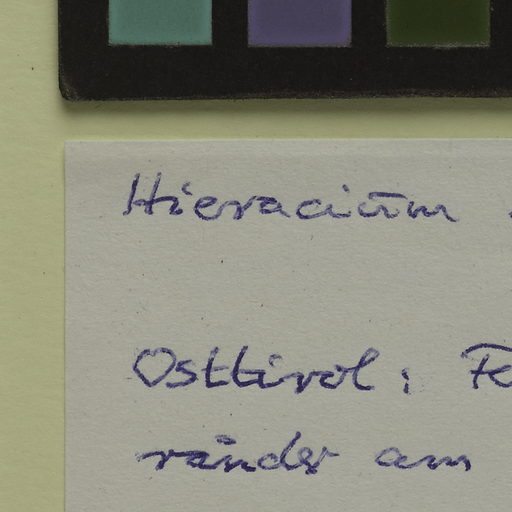 Hieracium
Osttirol: Fe
ränder am